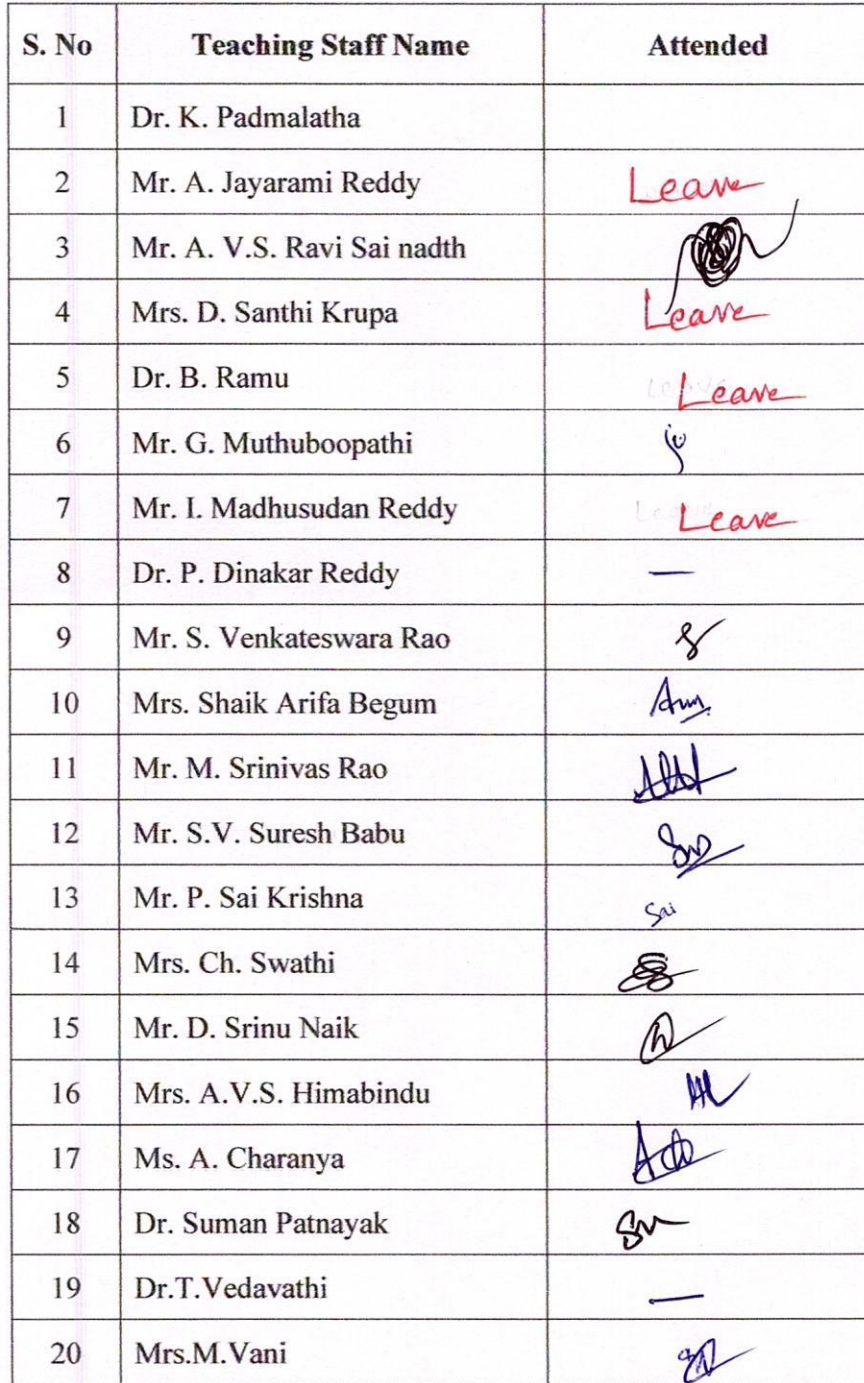 S. No Teaching Staff Name Attended
1 Dr. K. Padmalatha
2 Mr. A. Jayarami Reddy Leave
3 Mr. A. V.S. Ravi Sai nadth
4 Mrs. D. Santhi Krupa Leave
5 Dr. B. Ramu Leave
6 Mr. G. Muthuboopathi
7 Mr. I. Madhusudan Reddy Leave
8 Dr. P. Dinakar Reddy —
9 Mr. S. Venkateswara Rao
10 Mrs. Shaik Arifa Begum
11 Mr. M. Srinivas Rao
12 Mr. S.V. Suresh Babu
13 Mr. P. Sai Krishna Sai
14 Mrs. Ch. Swathi
15 Mr. D. Srinu Naik
16 Mrs. A.V.S. Himabindu
17 Ms. A. Charanya
18 Dr. Suman Patnayak
19 Dr.T.Vedavathi —
20 Mrs.M.Vani